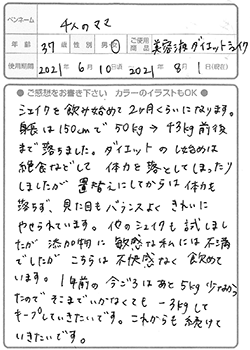 ペンネーム 4人のママ
年齢 37歳 性別 男・女 ご使用商品 美容液ダイエットシェイク
使用期間 2021年6月10日〜2021年8月1日(現在)
●ご感想をお書き下さい カラーのイラストもOK●
シェイクを飲み始めて2ヶ月くらいになります。
身長は150cmで50kg→43kg前後
まで落ちました。ダイエットのはじめは
絶食などして 体力を落としてしまったり
しましたが 置替えにしてからは体力も
落ちず、見た目もバランスよく きれいに
やせられています。他のシェイクも試しまし
たが 添加物に敏感な私には不調
でしたが こちらは 不快感なく 飲めて
います。1年前の今ごろはあと5kg少なかっ
たので そこまでいかなくても −3kgして
キープしていきたいです。これからも続けて
いきたいです。